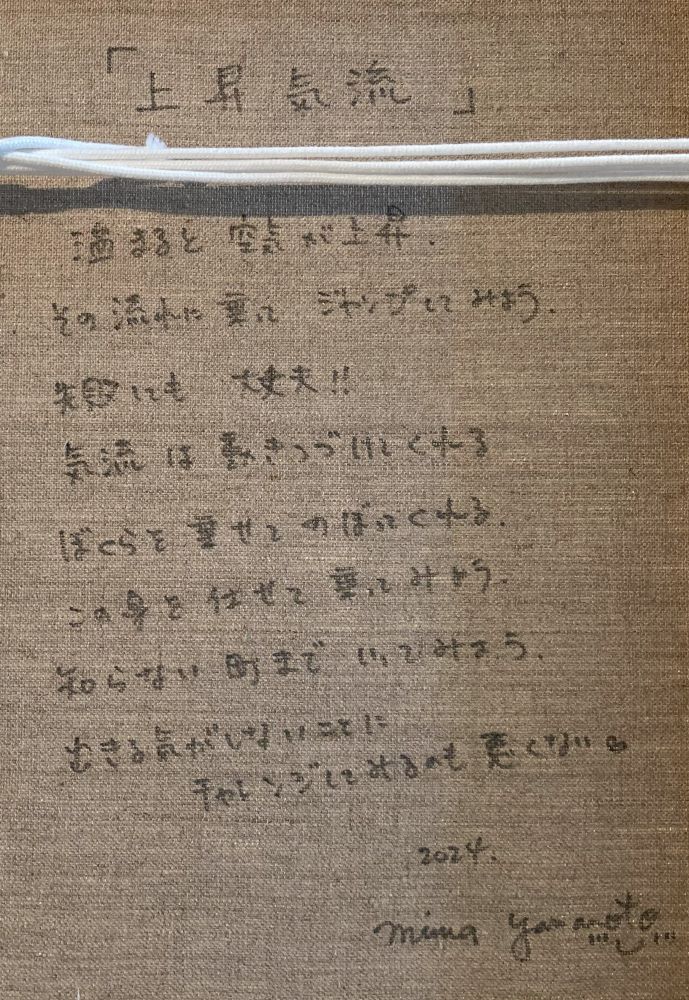 「上昇気流」
温まると 空気が上昇.
その流れに乗って ジャンプしてみよう.
失敗しても 大丈夫!!
気流は動きつづけてくれる
ぼくらを乗せてのぼってくれる.
この身を任せて乗ってみよう.
知らない町まで いってみよう.
出きる気がしないことに
チャレンジしてみるのも悪くない。
2024.
mima yamamoto